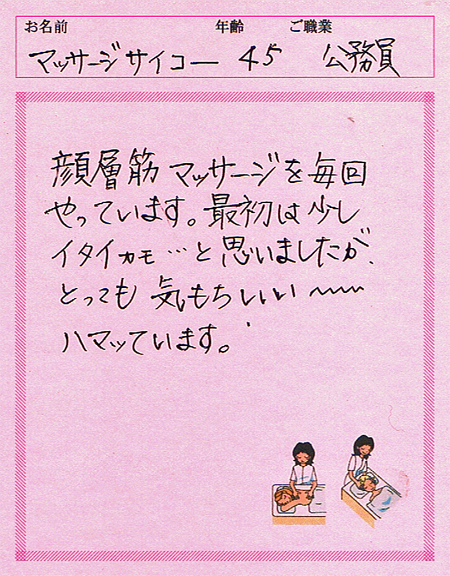 お名前 年齢 ご職業
マッサージサイコー 45 公務員
顔層筋マッサージを毎回
やっています。最初は少し
イタイカモ…と思いましたが、
とっても気もちいいい〜〜
ハマッています。